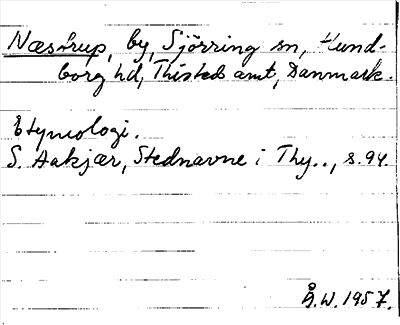 Næstrup, by, Sjörring sn, Hund-
borg hd, Thisteds amt, Danmark.
Etymologi.
S. Aakjær, Stednavne i Thy.., s.94.
Å.W. 1957.